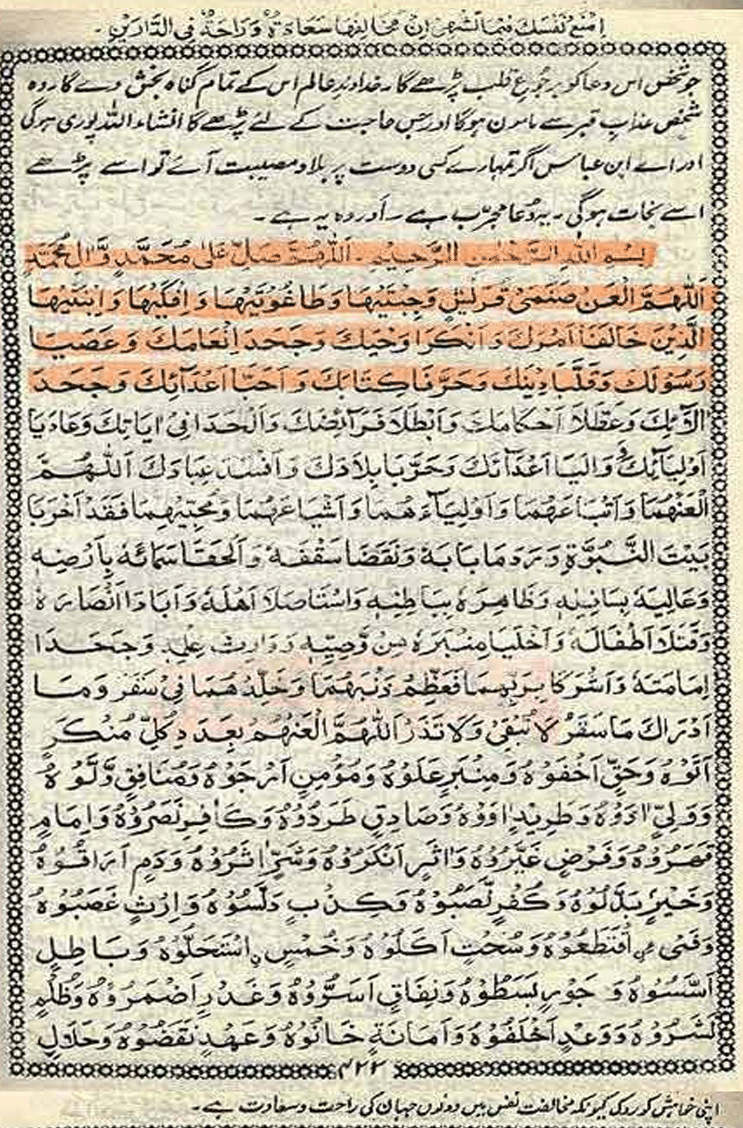 امنع نفسك فيما تشتهى ان مخالفتها سعادة وراحة فى الدارين۔
جو شخص اس دعا کو بر جوع قلب پڑھے گا۔ خداوند عالم اس کے تمام گناہ بخش دے گا۔ وہ
شخص عذاب قبر سے مامون ہوگا اور جس حاجت کے لئے پڑھے گا انشاء اللہ پوری ہوگی
اور اے ابن عباس اگر تمہارے کسی دوست پر بلا و مصیبت آئے تو اسے پڑھے
اسے نجات ہوگی۔ یہ دُعا مجرّب ہے۔ اور وہ یہ ہے۔
بِسْمِ اللهِ الرَّحْمٰنِ الرَّحِيْمِ۔ اَللّٰهُمَّ صَلِّ عَلٰى مُحَمَّدٍ وَّاٰلِ مُحَمَّدٍ
اَللّٰهُمَّ الْعَنْ صَنَمَىْ قُرَيْشٍ وَجِبْتَيْهَا وَطَاغُوْتَيْهَا وَاِفْكَيْهَا وَابْنَتَيْهَا
الَّذِيْنَ خَالَفَا اَمْرَكَ وَاَنْكَرَا وَحْيَكَ وَجَحَدَا اِنْعَامَكَ وَعَصَيَا
رَسُوْلَكَ وَقَلَّبَا دِيْنَكَ وَحَرَّفَا كِتَابَكَ وَاَحَبَّا اَعْدَآئَكَ وَجَحَدَا
اٰلَآئَكَ وَعَطَّلَا اَحْكَامَكَ وَاَبْطَلَا فَرَآئِضَكَ وَاَلْحَدَا فِىْ اٰيَاتِكَ وَعَادَيَا
اَوْلِيَآئَكَ وَوَالَيَا اَعْدَآئَكَ وَخَرَّبَا بِلَادَكَ وَاَفْسَدَا عِبَادَكَ اَللّٰهُمَّ
الْعَنْهُمَا وَاَتْبَاعَهُمَا وَاَوْلِيَآءَهُمَا وَاَشْيَاعَهُمَا وَمُحِبِّيْهِمَا فَقَدْ اَخْرَبَا
بَيْتَ النُّبُوَّةِ وَرَدَمَا بَابَهٗ وَنَقَضَا سَقْفَهٗ وَاَلْحَقَا سَمَائَهٗ بِاَرْضِهٖ
وَعَالِيَهٗ بِسَافِلِهٖ وَظَاهِرَهٗ بِبَاطِنِهٖ وَاسْتَاصَلَا اَهْلَهٗ وَاَبَادَا اَنْصَارَهٗ
وَقَتَلَا اَطْفَالَهٗ وَاَخْلَيَا مِنْبَرَهٗ مِنْ وَّصِيِّهٖ وَوَارِثِ عِلْمِهٖ وَجَحَدَا
اِمَامَتَهٗ وَاَشْرَكَا بِرَبِّهِمَا فَعَظِّمْ ذَنْبَهُمَا وَخَلِّدْهُمَا فِىْ سَقَرَ وَمَا
اَدْرَاكَ مَا سَقَرُ لَا تُبْقِىْ وَلَا تَذَرُ اَللّٰهُمَّ الْعَنْهُمْ بِعَدَدِ كُلِّ مُنْكَرٍ
اَتَوْهُ وَحَقٍّ اَخْفَوْهُ وَمِنْبَرٍ عَلَوْهُ وَمُؤْمِنٍ اَرْجَوْهُ وَمُنَافِقٍ وَّلَّوْهُ
وَوَلِيٍّ اٰذَوْهُ وَطَرِيْدٍ اٰوَوْهُ وَصَادِقٍ طَرَدُوْهُ وَكَافِرٍ نَصَرُوْهُ وَاِمَامٍ
قَهَرُوْهُ وَفَرْضٍ غَيَّرُوْهُ وَاَثَرٍ اَنْكَرُوْهُ وَشَرٍّ اٰثَرُوْهُ وَدَمٍ اَرَاقُوْهُ
وَخَيْرٍ بَدَّلُوْهُ وَكُفْرٍ نَّصَبُوْهُ وَكِذْبٍ دَلَّسُوْهُ وَاِرْثٍ غَصَبُوْهُ
وَفَىْءٍ اقْتَطَعُوْهُ وَسُحْتٍ اَكَلُوْهُ وَخُمْسٍ اسْتَحَلُّوْهُ وَبَاطِلٍ
اَسَّسُوْهُ وَجَوْرٍ بَسَطُوْهُ وَنِفَاقٍ اَسَرُّوْهُ وَغَدْرٍ اَضْمَرُوْهُ وَظُلْمٍ
نَشَرُوْهُ وَوَعْدٍ اَخْلَفُوْهُ وَاَمَانَةٍ خَانُوْهُ وَعَهْدٍ نَقَضُوْهُ وَحَلَالٍ
۴۲۲
اپنی خواہش کو روک کیونکہ مخالفت نفس میں دونوں جہان کی راحت و سعادت ہے۔